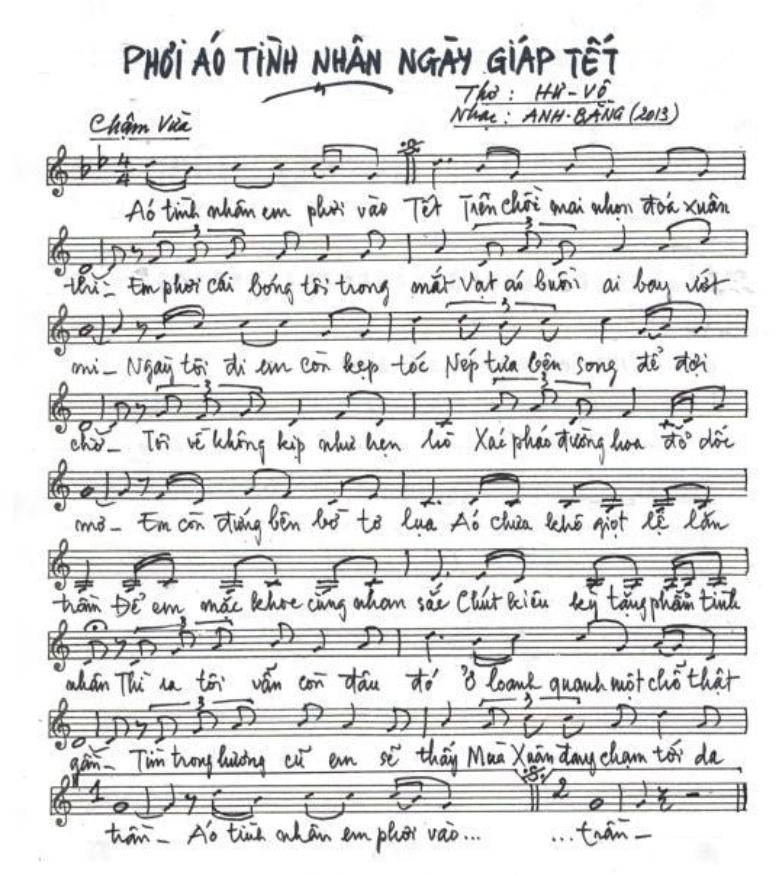 PHƠI ÁO TÌNH NHÂN NGÀY GIÁP TẾT
Thơ : HƯ-VÔ
Chậm Vừa
Nhạc : ANH-BẰNG (2013)
4
4
Áo tình nhân em phơi vào Tết Trên chồi mai nhọn đoá xuân
3 3
thì_ Em phơi cái bóng tôi trong mắt Vạt áo buồn ai bay ướt
3
mi_ Ngày tôi đi em còn kẹp tóc Nép tựa bên song để đợi
3 3
chờ_ Tôi về không kịp như hẹn hò Xác pháo đường hoa đỏ dốc
mơ_ Em còn đứng bên bờ tơ lụa Áo chưa khô giọt lệ lăn
trầm Để em mặc khoe cùng nhan sắc Chút kiêu kỳ tặng phẩm tình
3
nhân Thì ra tôi vẫn còn đâu đó Ở loanh quanh một chỗ thật
3 3
gần_ Tìm trong hương cũ em sẽ thấy Mùa Xuân đang chạm tới da
1 2
trần_ Áo tình nhân em phơi vào... ...trần_